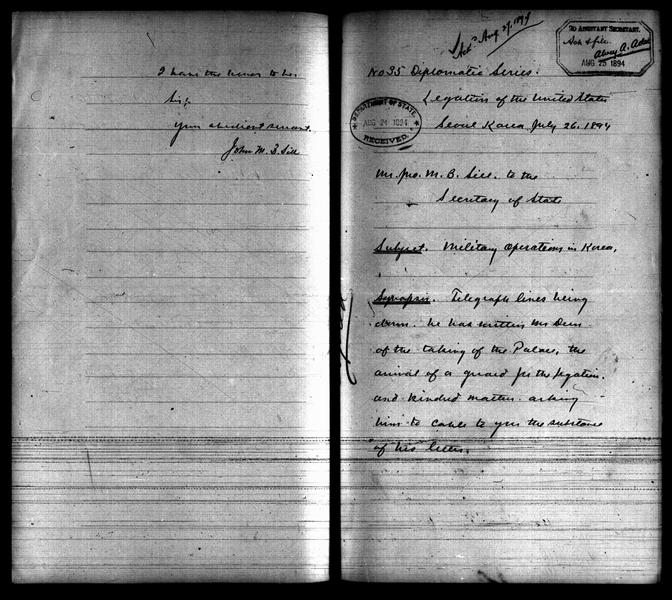 I have the honor to be
Sir,
your obedient servant.
John M. B. Sill
Ack'd Aug. 27, 1894
TO ASSISTANT SECRETARY.
Ack & file.
Alvey A. Adee
AUG 25 1894
No 35 Diplomatic Series.
Legation of the United States
DEPARTMENT OF STATE
AUG 24 1894
RECEIVED
Seoul Korea July 26. 1894
Mr. Jno. M. B. Sill. to the
Secretary of State
Subject. Military operations in Korea.
Synopsis. Telegraph lines being
down. he has written Mr Dun
of the taking of the Palace, the
arrival of a guard for the legation.
and kindred matters. asking
him to cable to you the substance
of his letters.